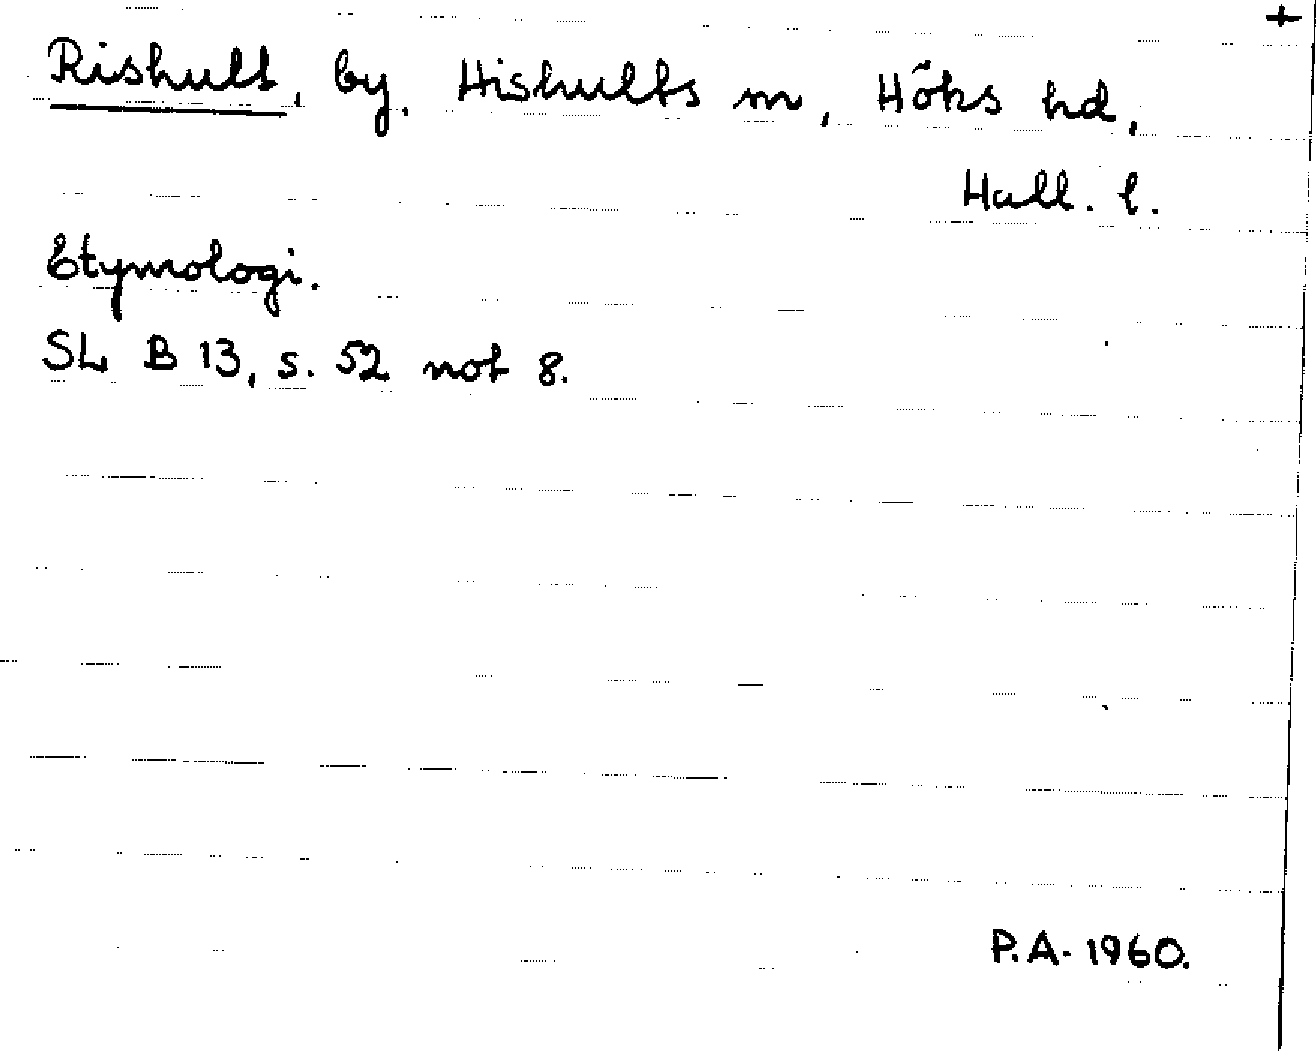 +
Rishult, by, Hishults sn, Höks hd,
Hall. l.
Etymologi.
SL B 13, s. 52 not 8.
P.A. 1960.